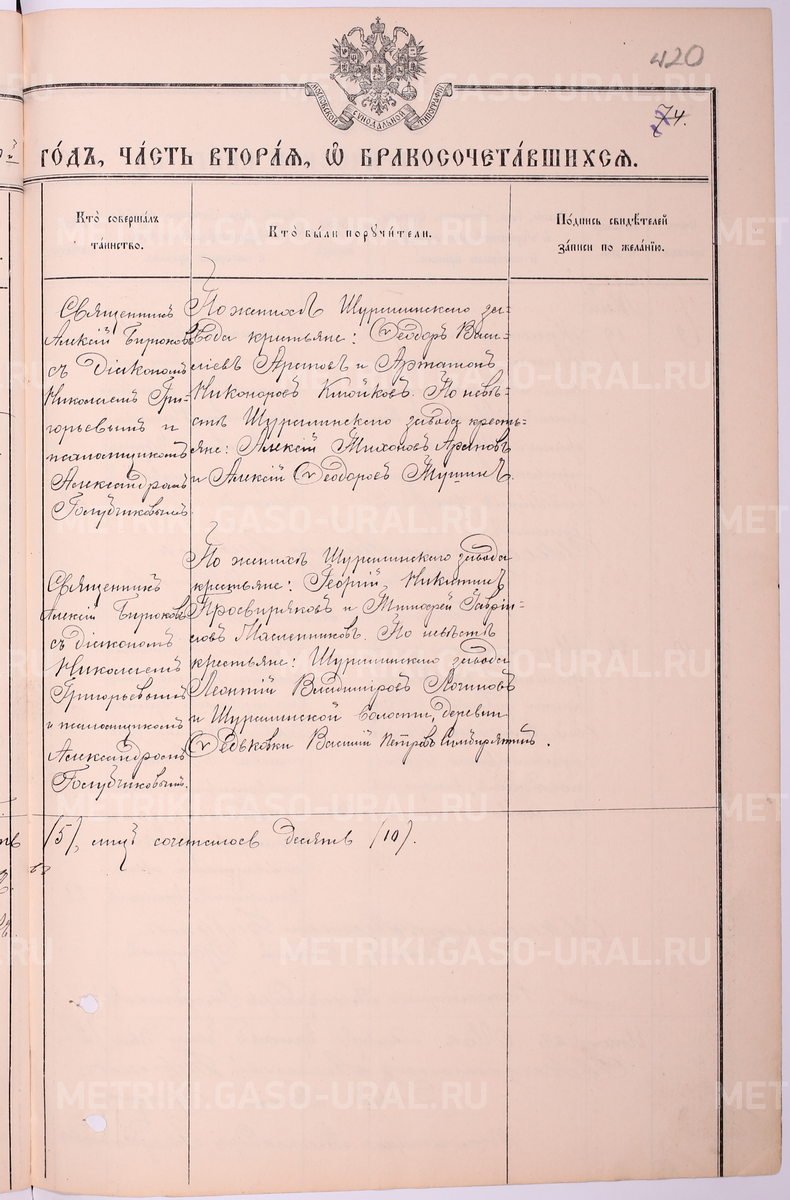 420
74.
МОСКОВСКОЙ СѴНОДАЛЬНОЙ ТИПОГРАФІИ
го́дъ, ча́сть втора́ѧ, ѡ҆ бракосочета́вшихсѧ.
Кто̀ соверша́лъ
та́инство.
Кто̀ бы́ли порꙋчи́тели.
По́дпись свидѣ́телей
за́писи по жела́нїю.
Священникъ
Алексій Бирюковъ
съ Діакономъ
Николаемъ Гри-
горьевымъ и
псаломщикомъ
Александромъ
Голубчиковымъ.
По женихѣ Шуралинскаго за-
вода крестьяне: Ѳеодоръ Васи-
ліевъ Арапов и Артамонъ
Никоноровъ По невѣ-
стѣ Шуралинскаго завода кресть-
яне: Алексій Тихоновъ Араповъ
и Алексій Ѳеодоровъ
Священникъ
Алексій Бирюковъ
съ діакономъ
Николаемъ
Григорьевымъ
и псаломщикомъ
Александромъ
Голубчиковымъ.
По женихѣ Шуралинскаго завода
крестьяне: Георгій Никитинъ
Просвиряковъ и Тимоѳей Гаврі-
ловъ Масленниковъ. По невѣстѣ
крестьяне: Шуралинскаго завода
Леонтій Владиміровъ Лочиновъ
и Шуралинской волости, деревни
Ѳедьковки Василій Петровъ Симбирятинъ.
/5/, лицъ сочеталось десять /10/.